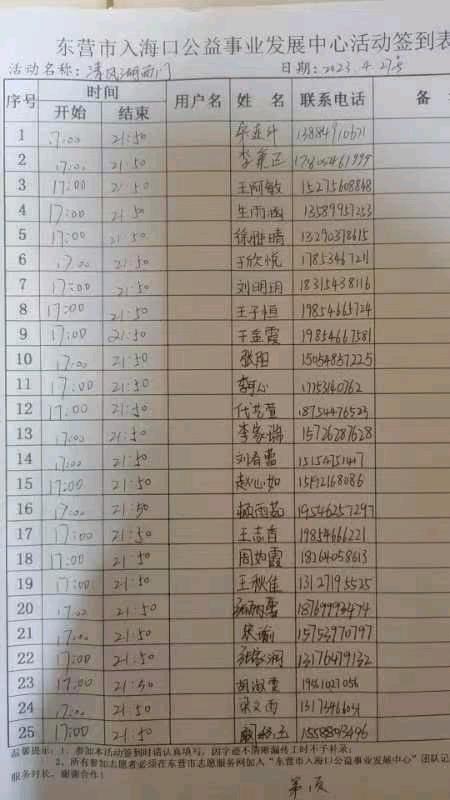 东营市入海口公益事业发展中心活动签到表
活动名称：清风湖西门 日期：2023.4.27号
序号 时间 用户名 姓 名 联系电话 备
开始 结束
1 17:00 21:50 13884910671
2 17:00 21:50 李秉正 17805461999
3 17:00 21:50 王阿敏 15275608848
4 17:00 21:50 生雨涵 13589957253
5 17:00 21:50 徐雅晴 13290378615
6 17:00 21:50 于欣悦 17853467211
7 17:00 21:50 刘明玥 18315438116
8 17:00 21:50 王子恒 19854665724
9 17:00 21:50 于孟霞 19854667581
10 17:00 21:50 张阳 15054857225
11 17:00 21:50 李心
12 17:00 21:50 代芸萱 18754476523
13 17:00 21:50 李家瑞 15726287628
14 17:00 21:50 刘春蕾 15154751447
15 17:00 21:50 赵心如 15192168086
16 17:00 21:50 顾雨茹 19546257297
17 17:00 21:50 王志香 19854666221
18 17:00 21:50 周如霞 18264058613
19 17:00 21:50 王秋佳 13127195525
20 17:00 21:50 18769993474
21 17:00 21:50 宋瑜 15753970797
22 17:00 21:50 张家润 13176479132
23 17:00 21:50 胡淑雯
24 17:00 21:50 宋文雨
25 17:00 21:50
温馨提示：1、参加本活动签到时请认真填写，因字迹不清晰漏传工时不予补录；
2、所有参加志愿者必须在东营市志愿服务网加入“东营市入海口公益事业发展中心”团队记
服务时长，谢谢合作！
第1页